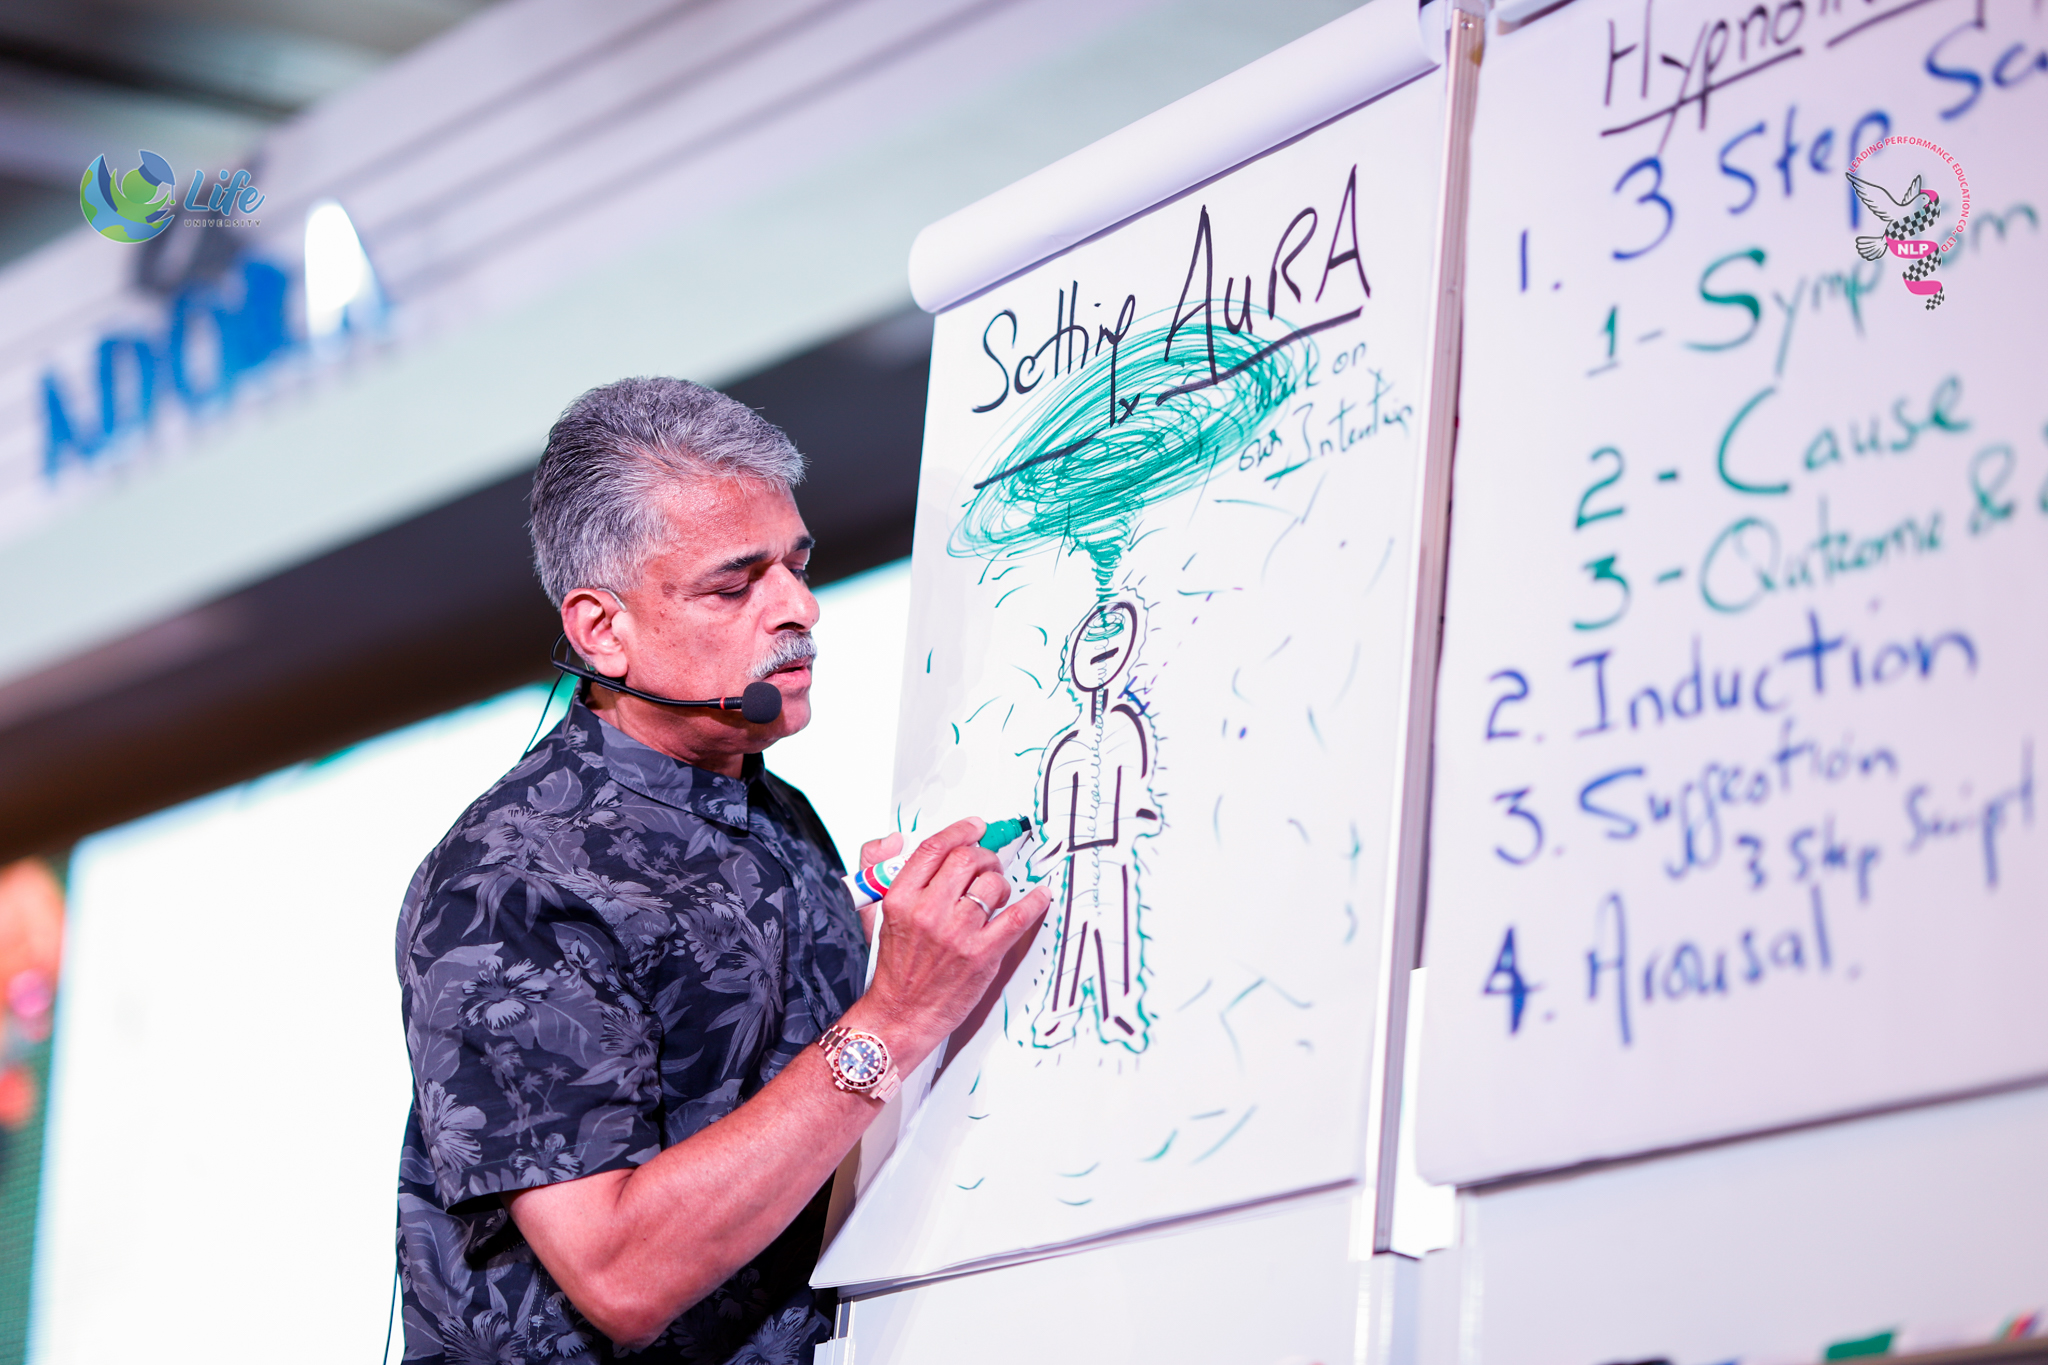 Life
UNIVERSITY
ADORA
Setting AuRA
Work on
our Intention
3 Step
1.
1- Symptom
2- Cause
3- Outcome &
2. Induction
3. Suggestion
3 Step Script
4. Arousal.
LEADING PERFORMANCE EDUCATION CO.,LTD
NLP